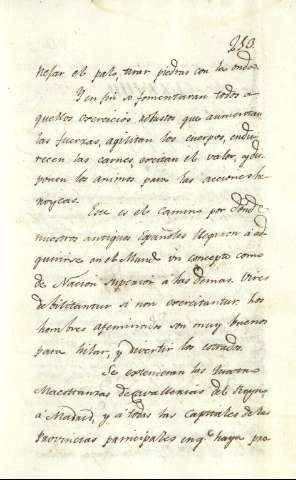 210.
nejar el palo, tirar piedras con la onda.
Y en fin se fomentaran todos a
quellos exercicios robustos que aumentan
las fuerzas, agilitan los cuerpos, endu
recen las carnes, excitan el valor, y dis
ponen los animos para las acciones he
royeas.
Este es el camino por donde
nuestros antiguos Españoles llegaron á ad
quirirse en el Mundo un concepto como
de Nacion superior á las demas. Vires
debilitantur si non exercitantur. Los
hombres afeminados son muy buenos
para hilar, y divertir los estrados.
Se extenderan las quatro
Maestranzas de Cavallerias del Reyno,
á Madrid, y á todas las Capitales de las
Provincias principales en q.e haya pro